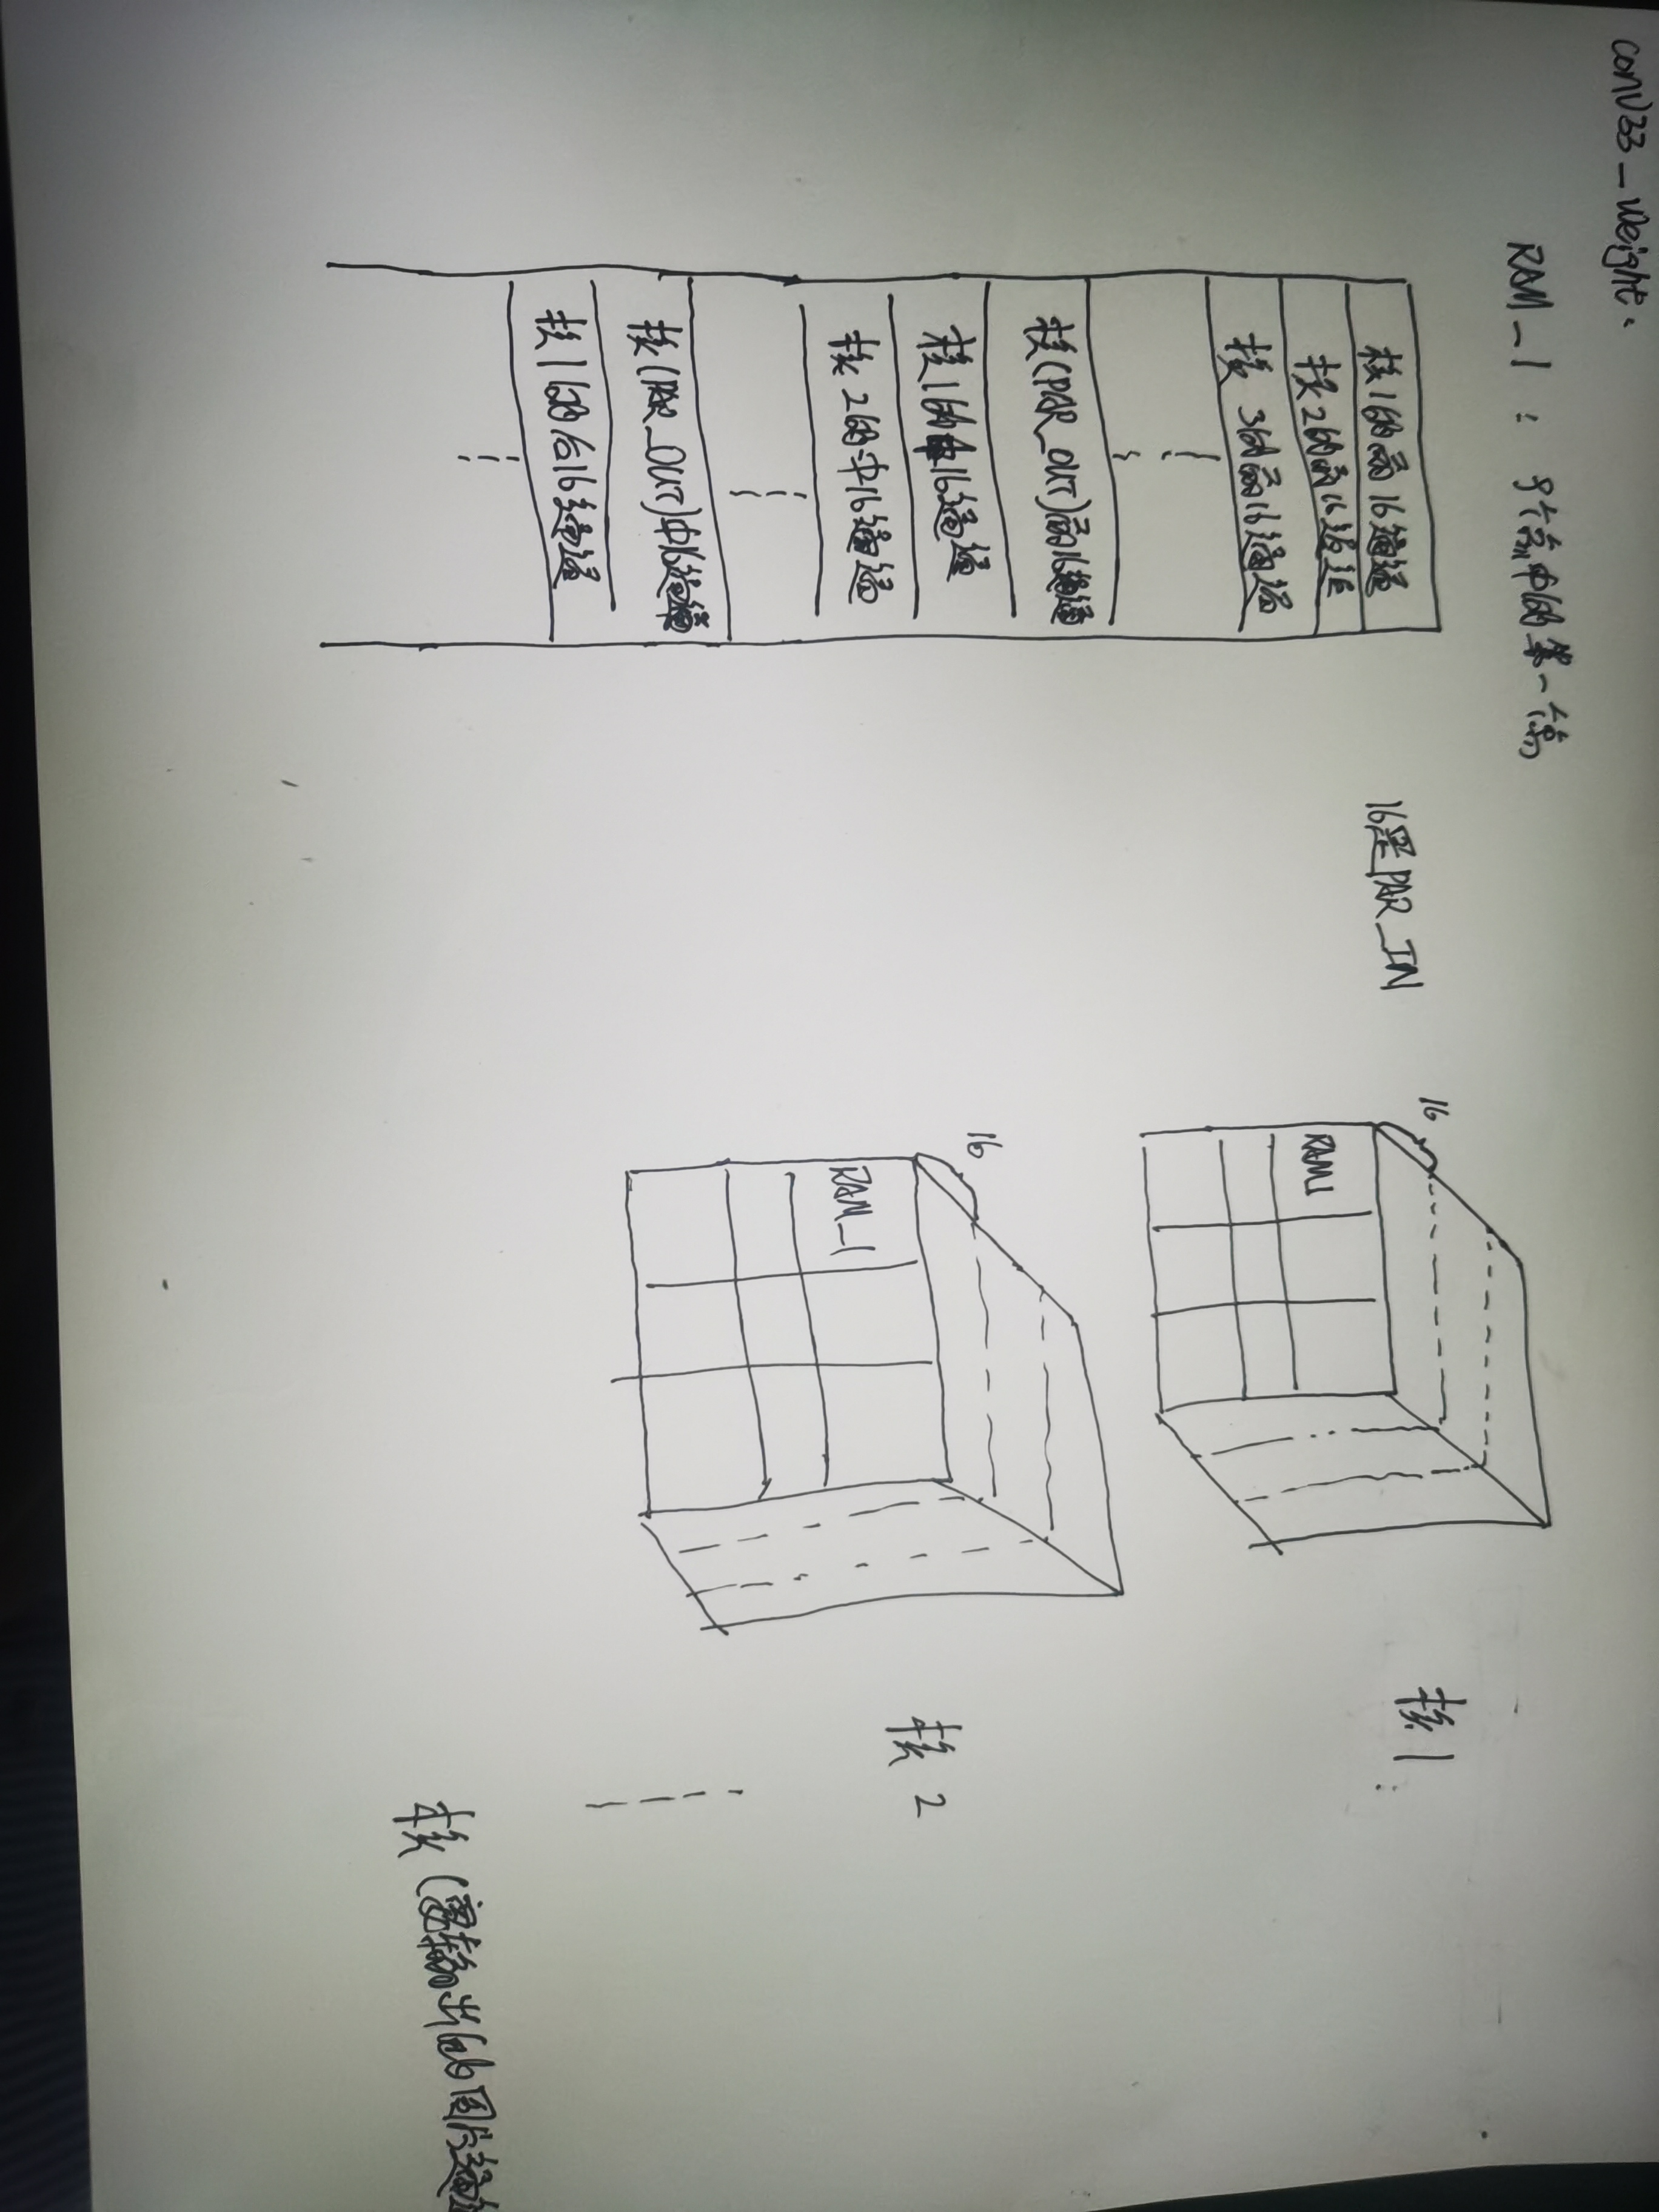 conv33_weight.
RAM_1 : 9个点中的第一个点
核1的前16通道
核2的前16通道
核3的前16通道
核(PAR_OUT)前16通道
核1的中16通道
核2的中16通道
核(PAR_OUT)中16通道
核1的后16通道
16是PAR_IN
16
RAM1
核1
16
RAM_1
核2
核(要输出的图片通道